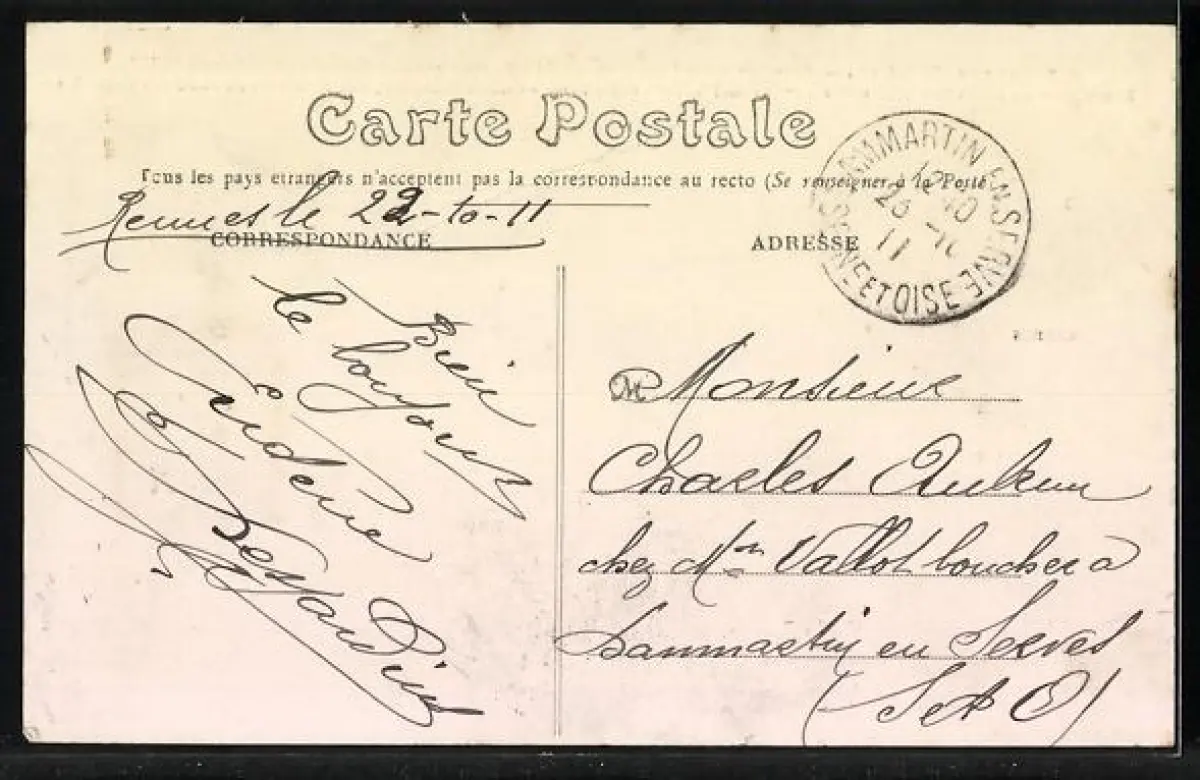 Carte Postale
Tous les pays étrangers n'acceptent pas la correspondance au recto (Se renseigner à la Poste
Rennes le 22-10-11
CORRESPONDANCE
ADRESSE
DAMMARTIN EN SERVE
SEINE ET OISE
11
Bien
le bonjour
M Monsieur
Charles
chez Mr Vallot boucher a
Danmartin en Serves
(S et O)